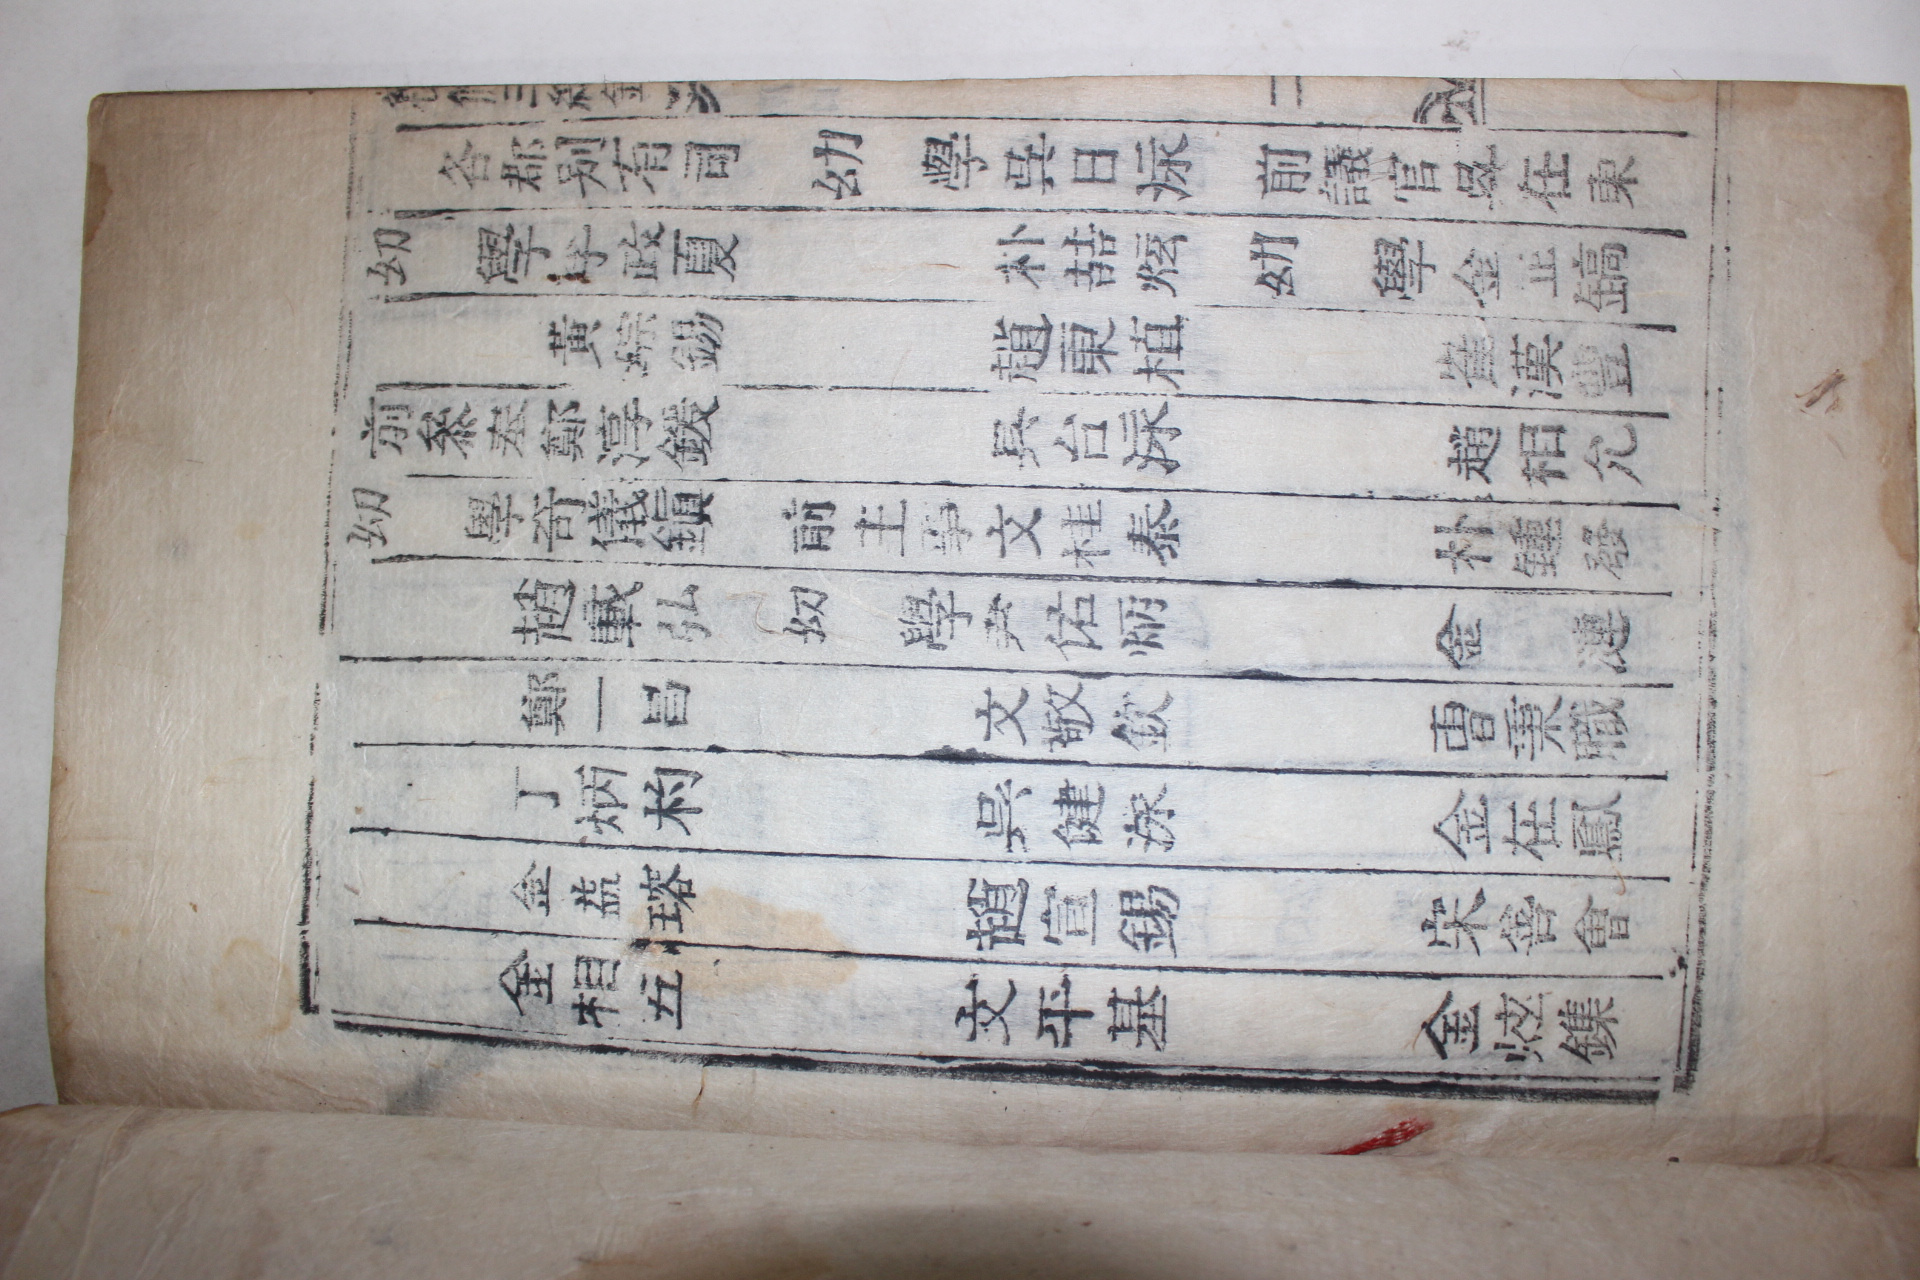 各郡别有司 幼 學吳日泳 前議官吳在東
幼 學李政夏 朴喆炫 幼 學金正鎬
黃琮錫 趙東植 崔漢豐
前參奉鄭淳鍰 吳台泳 趙相允
幼 學奇儀鎭 前主事文桂泰 朴鍾發
趙載弘 幼 學尹佑炳 金 漣
鄭一昌 文敬欽 曺秉職
丁炳杓 吳健泳 金在鳳
金益瑢 趙宣錫 宋善會
金相五 文平基 金炫鏶
二